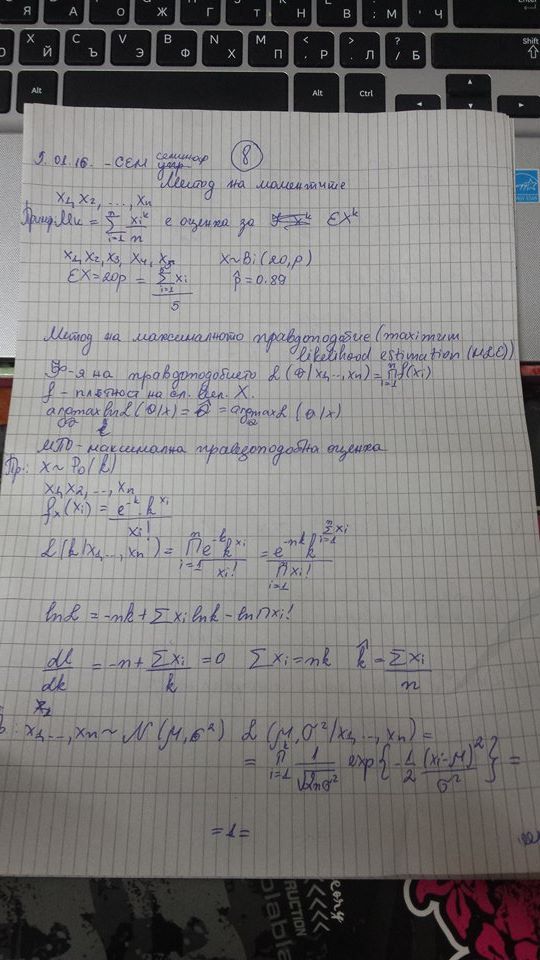 Я С Д В Ъ М Ч
X Й C Ъ V Э B Ф N Х M П < , Р > . Л ? / Б Shift
Alt Alt Ctrl
5.01.16. - СЕМ семинар упр. 8
Метод на моментите
x1, x2, ..., xn
Mk = Σ_{i=1}^{n} xi^k / n е оценка за EX^k
x1, x2, x3, x4, x5 X~Bi(20, p)
EX = 20p = Σ_{i=1}^{5} xi / 5 p̂ = 0.89
Метод на максималното правдоподобие (maximum
likelihood estimation (MLE))
Ф-я на правдоподобието L(θ|x1,...,xn) = ∏_{i=1}^{n} f(xi)
f - плътност на сл. вел. X.
argmax lnL(θ|x) = θ̂ = argmax L(θ|x)
МПО - максимална правдоподобна оценка
Пр: X ~ Po(k)
x1, x2, ..., xn
fx(xi) = e^{-k} k^{xi} / xi!
L(k|x1,...,xn) = ∏_{i=1}^{n} e^{-k} k^{xi} / xi! = e^{-nk} k^{Σ_{i=1}^{n} xi} / ∏_{i=1} xi!
lnL = -nk + Σxi lnk - ln∏xi!
dl/dk = -n + Σxi / k = 0 Σxi = nk k̂ = Σxi / n
x1, ..., xn ~ N(μ, σ²) L(μ, σ²|x1, ..., xn) =
= ∏_{i=1} 1/√2πσ² exp{-1/2 (xi-μ)²/σ²} =
=1=